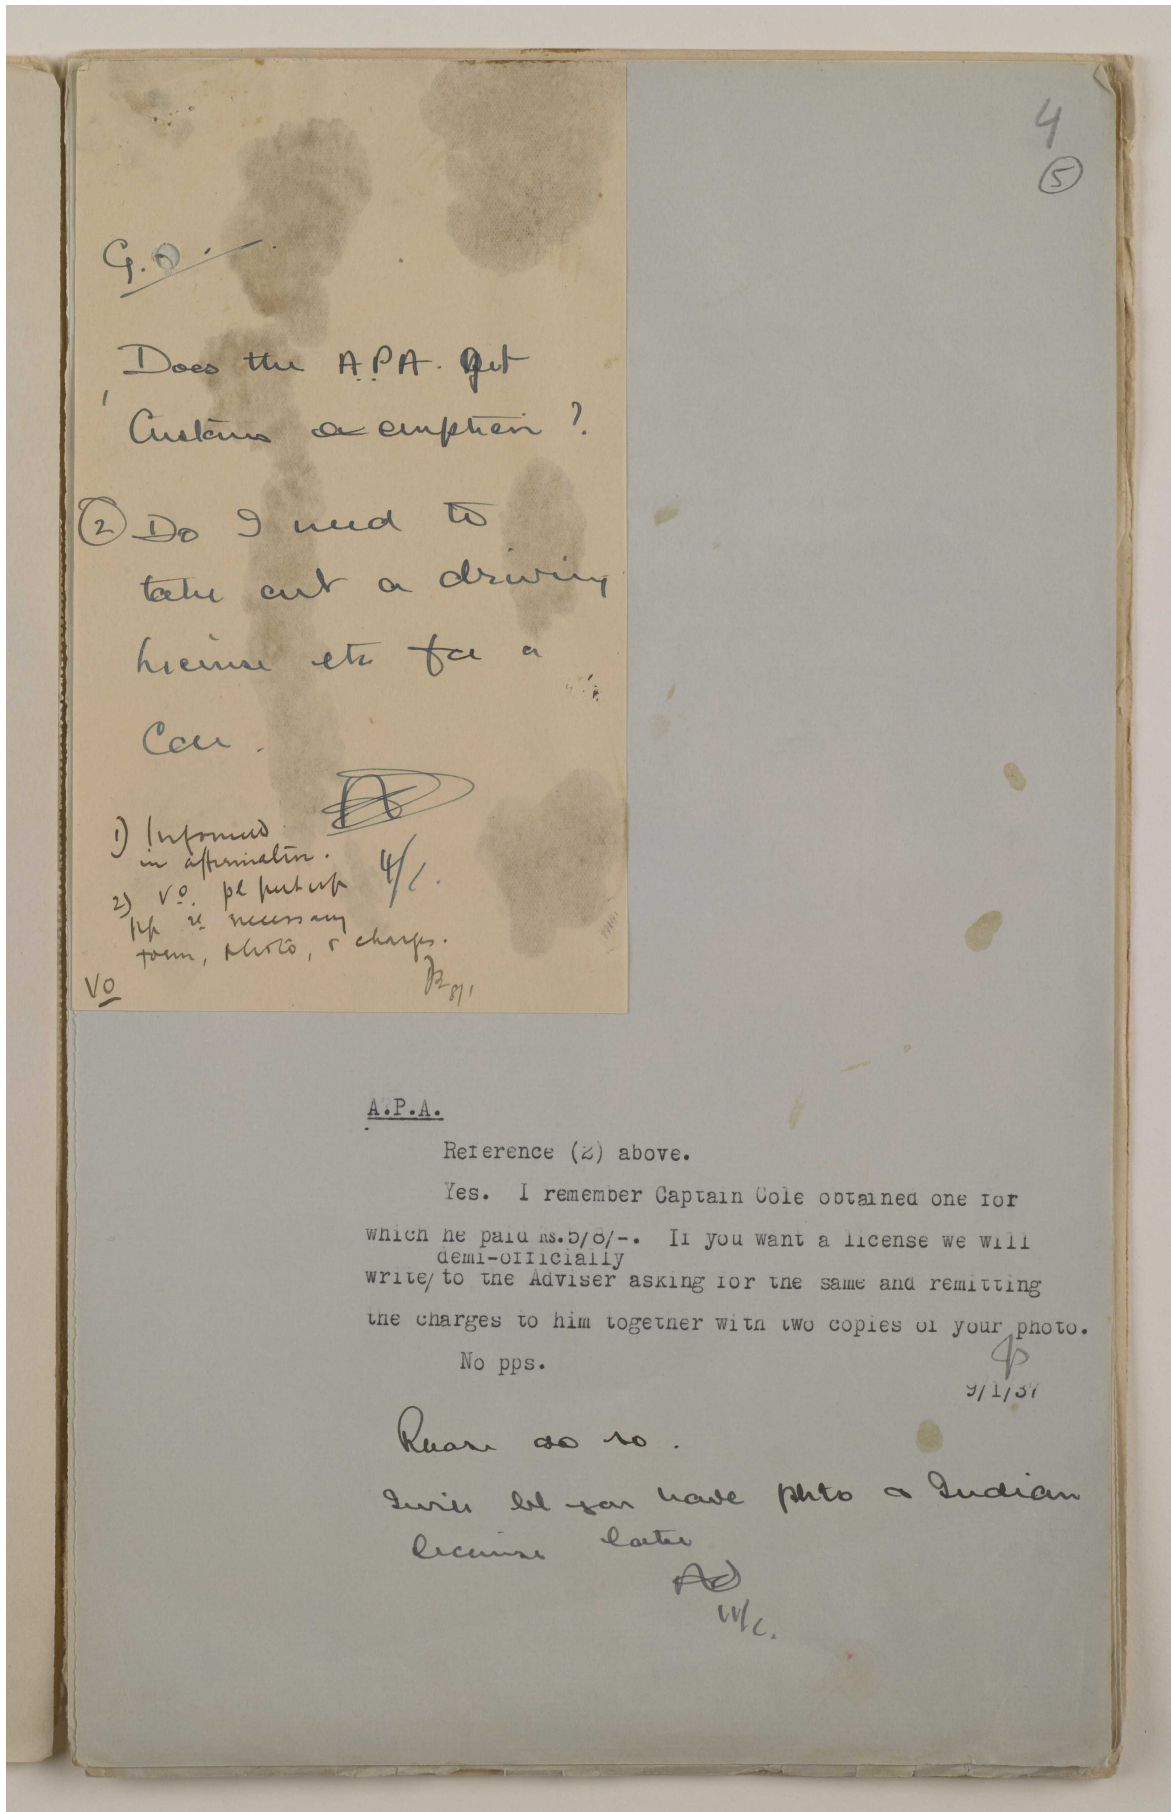 4
5
G.O.
Does the A.P.A. get
Customs exemption ?
2 Do I need to
take out a driving
license etc for a
Car.
4/1.
1) Informed
in affirmative.
2) V O. pl put up
pp re necessary
form, photo, & charges.
8/1
VO
A.P.A.
Reference (2) above.
Yes. I remember Captain Cole obtained one for
which he paid Rs.5/8/-. If you want a license we will
demi-officially
write/ to the Adviser asking for the same and remitting
the charges to him together with two copies of your photo.
No pps.
9/1/37
Please do so.
I will let you have photo & Indian
license later